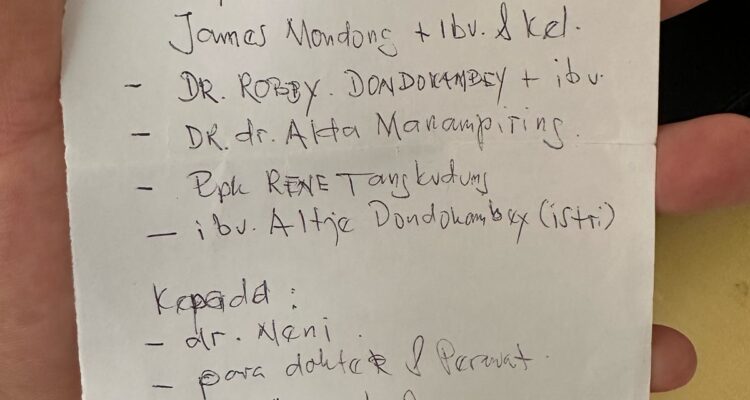 James Mondong + Ibu. & Kel.
- DR. ROBBY. DONDOKAMBEY + ibu.
- DR. dr. Akta Manampiring.
- Bpk RENE Tangkudung
- ibu. Altje Dondokambey (istri)
Kepada :
- dr. Neni
- para dokter & Perawat.